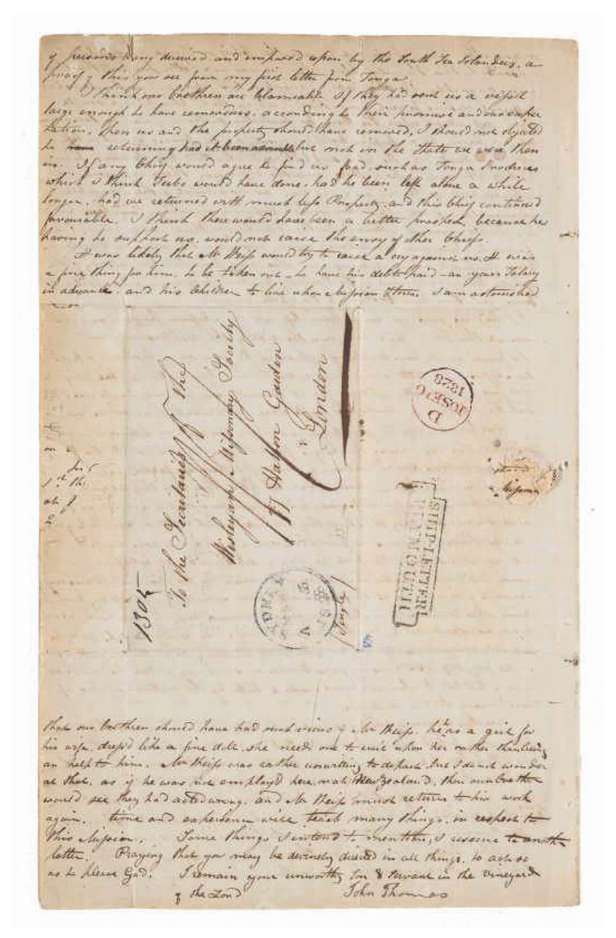 of persons being deceived and imposed upon by the South Sea Islanders, a
proof of this you see from my first letter from Tonga
I think our brethren are blamable. If they had sent us a vessel
large enough to have removed us, according to their promise and our expec
tation, then us and the property should have removed, I should not objected
to returning had it been but not in the State we were then
in. If any Chief would agree to find us food, such as Tonga produces
which I think Teebo would have done, had he been left alone a while
longer, had we returned with much less Property, and this Chief continued
favourable. I think there would have been a better prospect, because he
having to support us, would not raise the envy of other Chiefs.
It was likely that Mr Weiss would try to raise a cry against us. It was
a fine thing for him, to be taken out to have his debts paid - an years Salary
in advance, and his Children to live upon Mission Stores. I am astonished
To the Secretaries of the
Wesleyan Missionary Society
77 Hatton Garden
London
1305
Single
D
10 SE 10
1828
SHIP-LETTER
PLYMOUTH
SYDNEY
that our brethren should have had such views of Mr Weiss. he has a girl for
his wife, dress'd like a fine doll, she needs one to wait upon her rather than being
an help to him. Mr Weiss was rather unwilling to depart, but I do not wonder
at that, as if he was not employ'd here, or at New Zealand, then our brethren
would see they had acted wrong, and Mr Weiss must return to his work
again. time and experience will teach many things, in respect to
this Mission. Some things I intend to mention, I reserve to another
letter. Praying that you may be divinely directed in all things, to act so
as to please God. I remain your unworthy Son & servant in the vineyard
of the Lord John Thomas